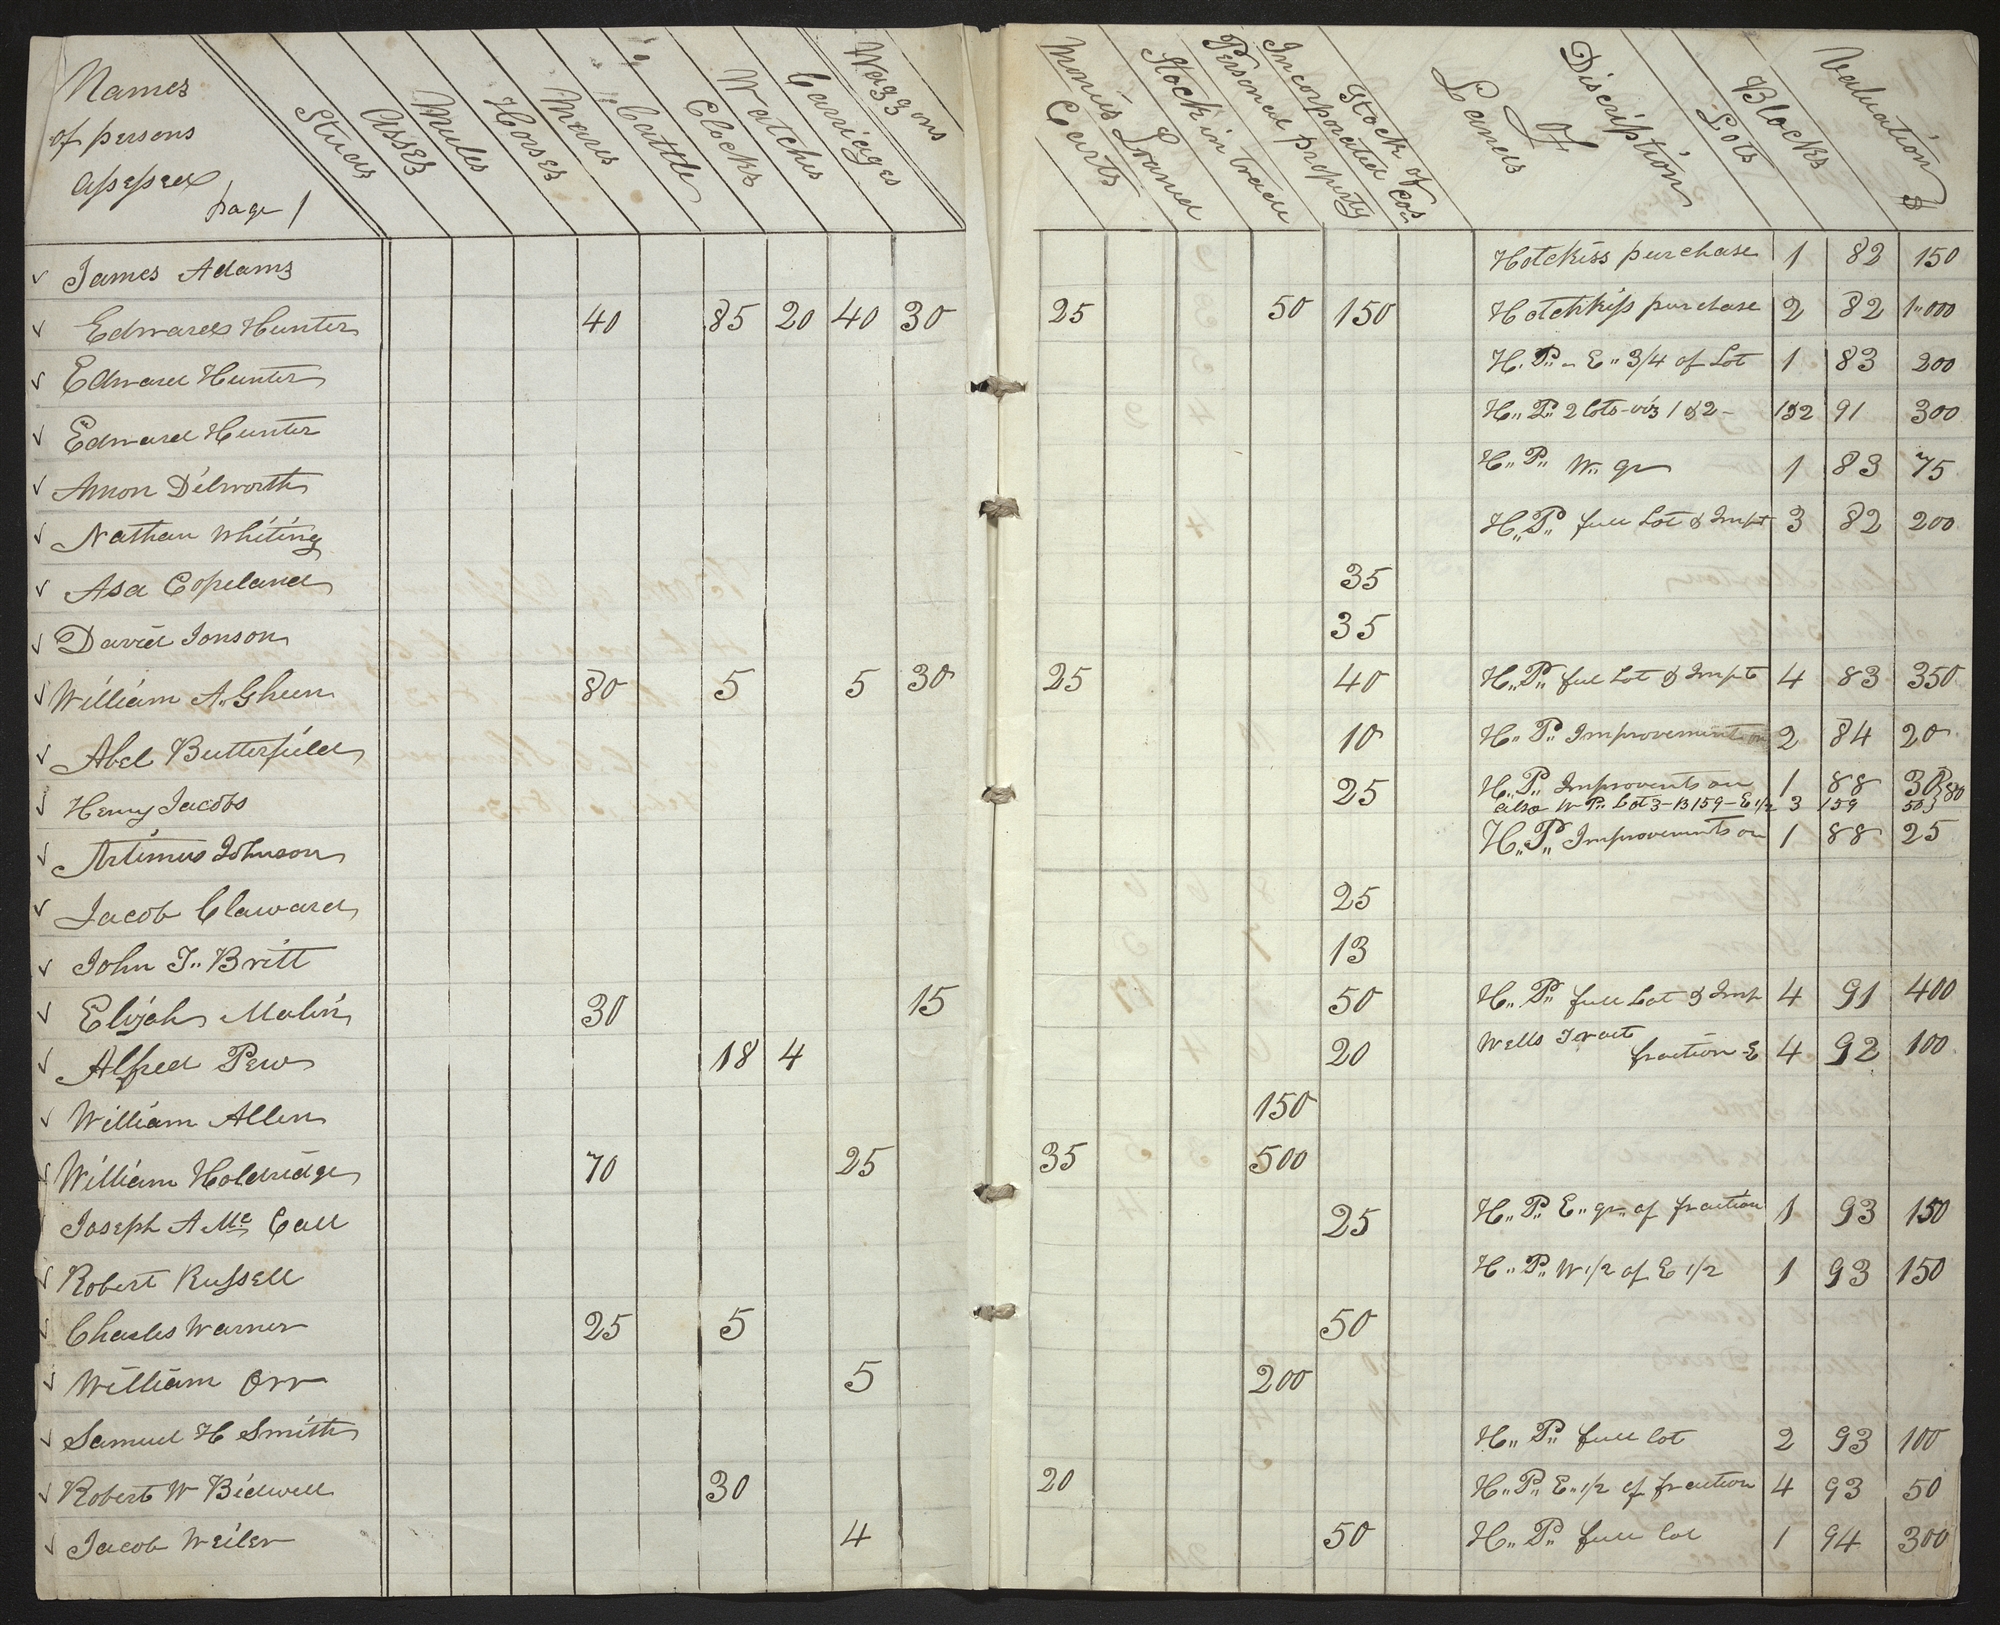 Names of persons assessed page 1 | Studs | Asses | Mules | Horses | Mares | Cattle | Clocks | Watches | Carriages | Waggons | Carts | Monies Loaned | Stock in trade | Personal property | Stock of Incorporated Cos | Discription of Lands | Lots | Blocks | Valuation $
James Adams Hotckiss purchase 1 82 150
Edward Hunter 40 85 20 40 30 25 50 150 Hotchkiss purchase 2 82 1"000
Edward Hunter H. P." E" 3/4 of Lot 1 83 200
Edward Hunter H" P" 2 lots - viz 1 & 2 - 1&2 91 300
Amon Dilworth H" P" W" qr 1 83 75
Nathan Whiting H" P" full Lot & Impt 3 82 200
Asa Copeland 35
David Jonson 35
William A. Gheen 80 5 5 30 25 40 H" P" ful Lot & Impt 4 83 350
Abel Butterfield 10 H" P" Improvements on 2 84 20
Henry Jacobs 25 H" P" Improvents on 1 88 30
also W P" Lot 3 - B 159 - E 1/2 3 159 50 } 80
Artimus Johnson H" P" Improvements on 1 88 25
Jacob Claward 25
John T" Britt 13
Elijah Malin 30 15 50 H" P" full Lot & Imp 4 91 400
Alfred Pew 18 4 20 Wells Tract fraction E 4 92 100
William Allen 150
William Holdridge 70 25 35 500
Joseph A Mc Call 25 H" P" E" qr" of fraction 1 93 150
Robert Russell H" P" W 1/2 of E 1/2 1 93 150
Charles Warner 25 5 50
William Orr 5 200
Samuel H Smith H" P" full lot 2 93 100
Robert W Bidwell 30 20 H" P" E" 1/2 of fraction 4 93 50
Jacob Weiler 4 50 H" P" full lot 1 94 300